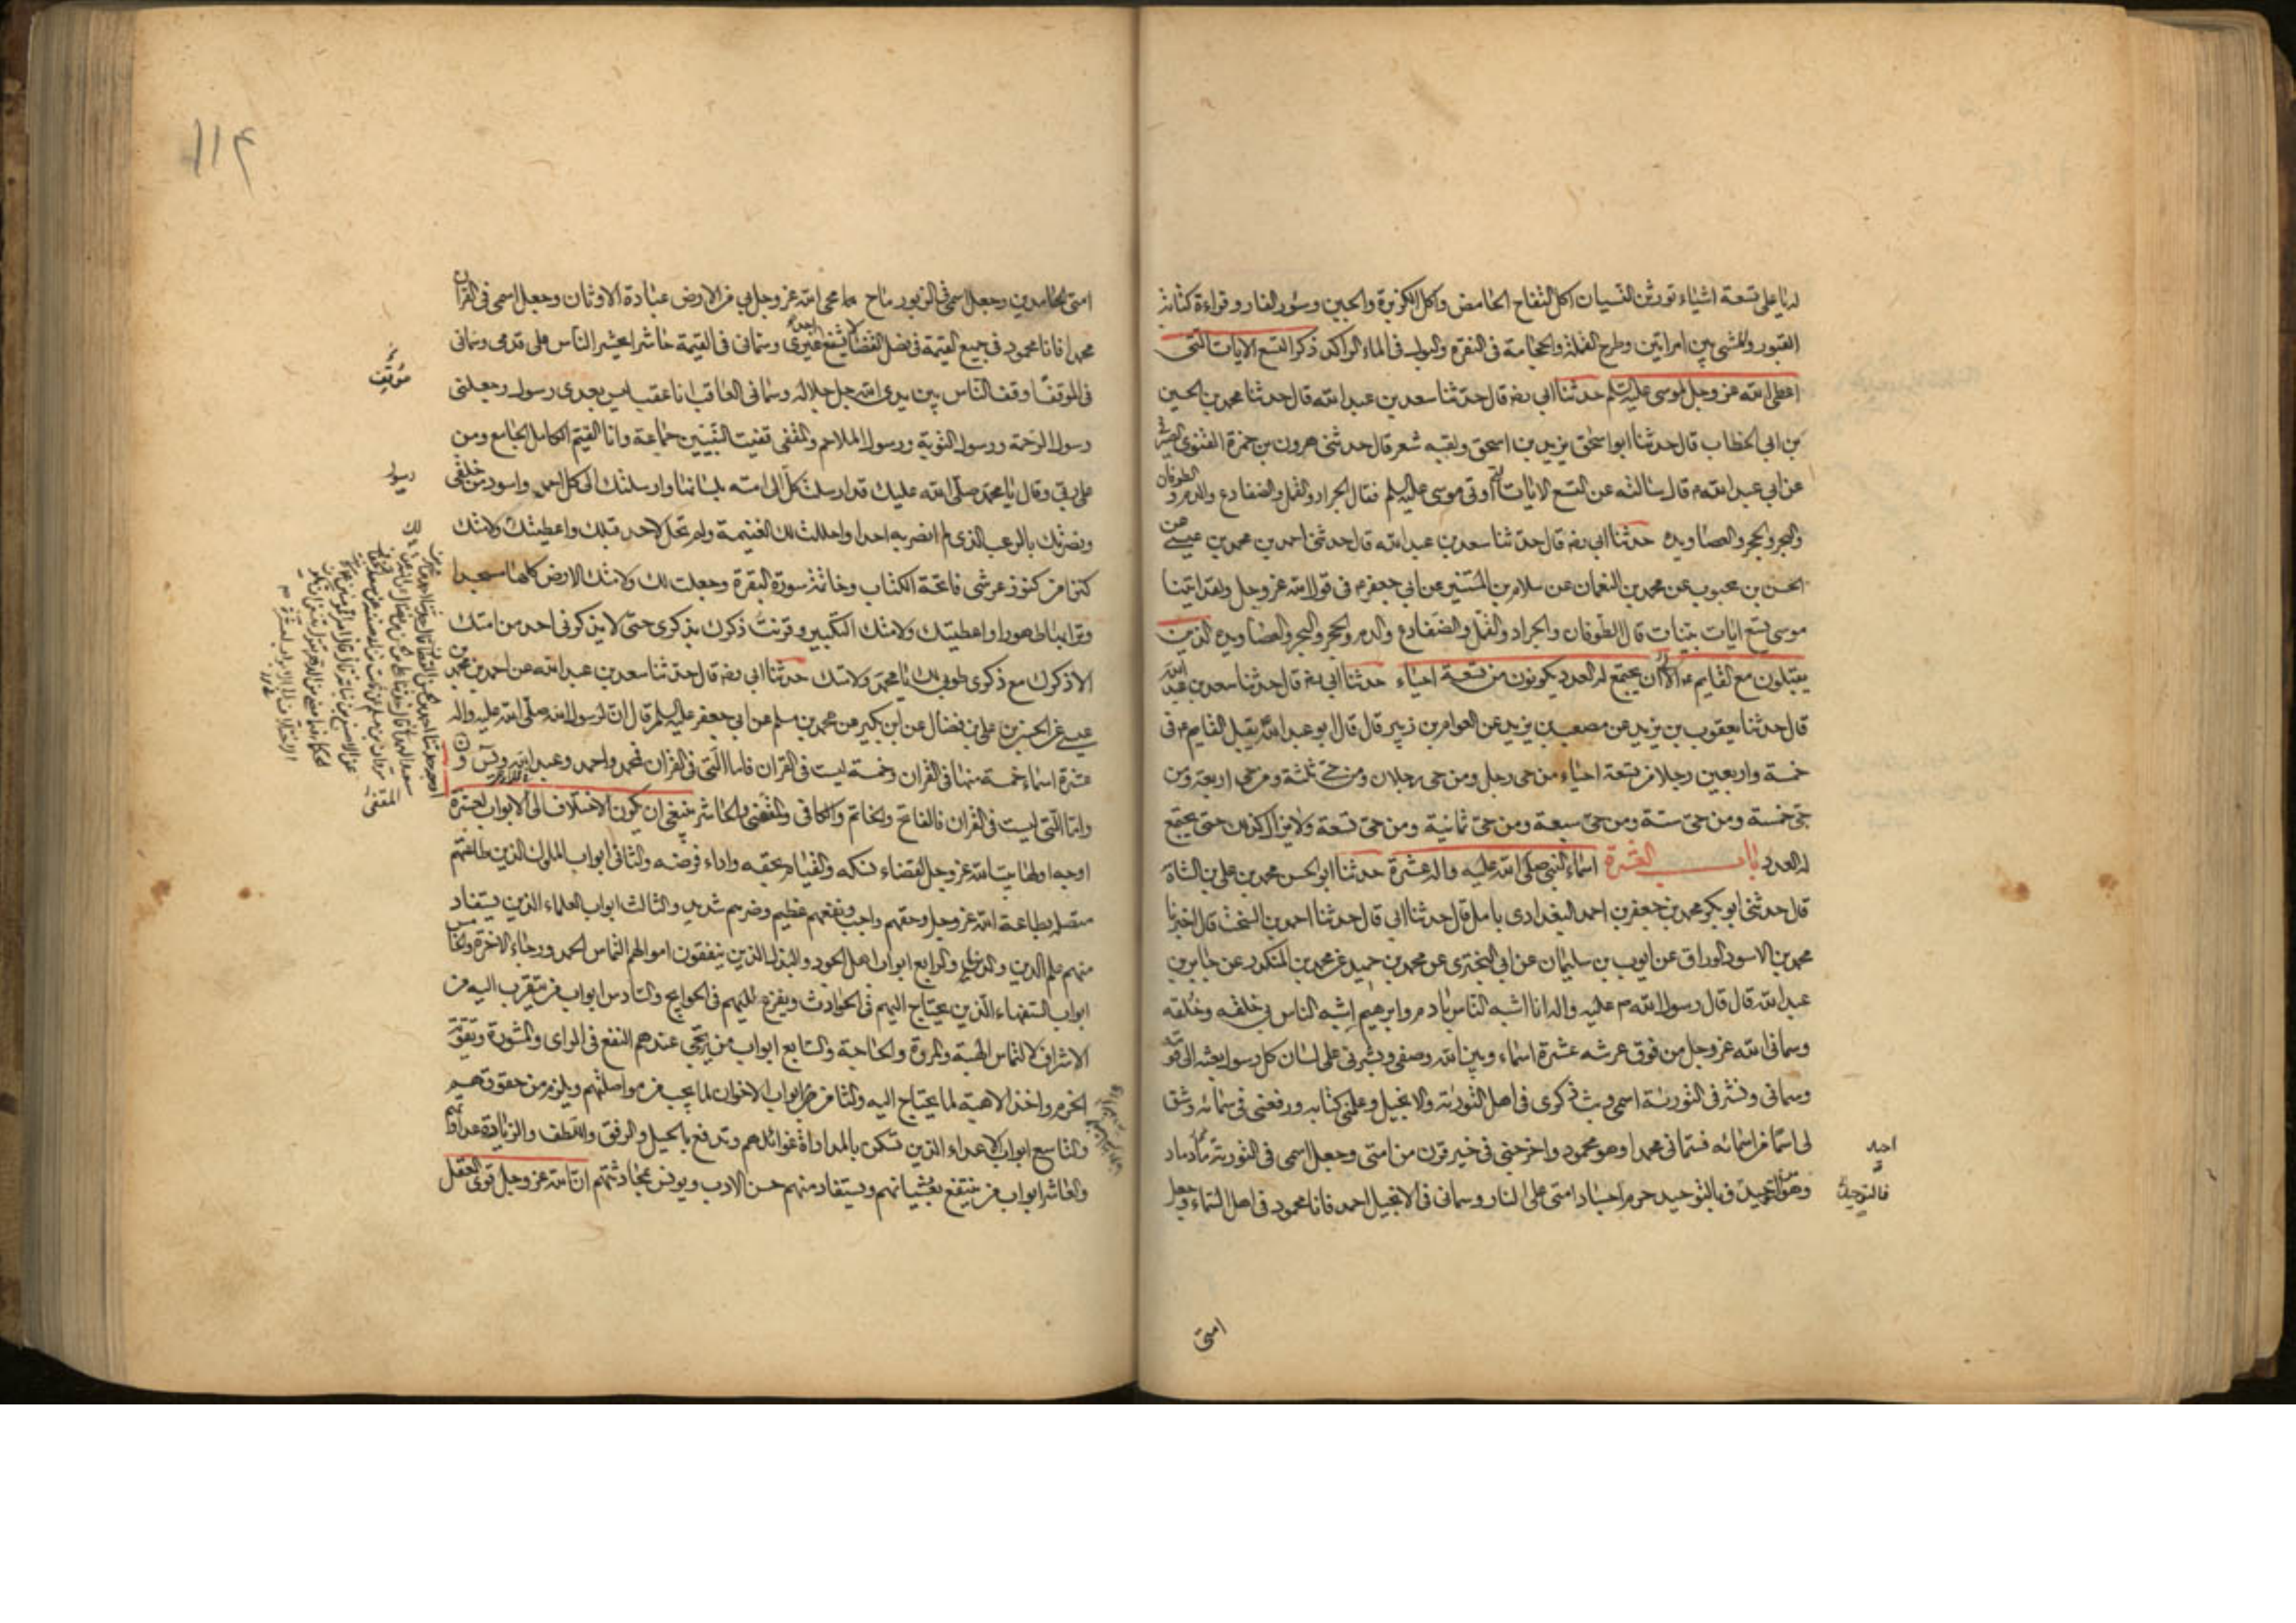 له يا علي تسعة اشياء تورث النسيان اكل التفاح الحامض واكل الكزبرة والجبن وسؤر الفار وقراءة كتابة
القبور والمشي بين امراتين وطرح القملة والحجامة في النقرة والبول في الماء الراكد ذكر التسع الايات التي
اعطى الله عز وجل لموسى عليه السلم حدثنا ابي رضه قال حدثنا سعد بن عبد الله قال حدثنا محمد بن الحسين
بن ابي الخطاب قال حدثنا ابو اسحق يزيد بن اسحق ولقبه شعر قال حدثني هرون بن حمزة الغنوي الصيرفي
عن ابي عبد الله م قال سالته عن التسع الايات التي اوتي موسى عليه السلم فقال الجراد والقمل والضفادع والدم والطوفان
والبحر والحجر والعصا ويده حدثنا ابي رضه قال حدثنا سعد بن عبد الله قال حدثني احمد بن محمد بن عيسى عن
الحسن بن محبوب عن محمد بن النعمان عن سلام بن المستنير عن ابي جعفر م في قول الله عز وجل ولقد اتينا
موسى تسع ايات بينات قال الطوفان والجراد والقمل والضفادع والدم والحجر والبحر والعصا ويده الذين
يقبلون مع القايم الى ان يجتمع له العدد يكونون من تسعة احياء حدثنا ابي رضه قال حدثنا سعد بن عبد الله
قال حدثنا يعقوب بن يزيد عن مصعب بن يزيد عن العوام بن زبير قال قال ابو عبد الله يقبل القايم م في
خمسة واربعين رجلا من تسعة احياء من حي رجل ومن حي رجلان ومن حي ثلثة ومن حي اربعة ومن
حي خمسة ومن حي ستة ومن حي سبعة ومن حي ثمانية ومن حي تسعة ولا يزال كذلك حتى يجتمع
له العدد باب العشرة اسماء النبي صلى الله عليه واله عشرة حدثنا ابو الحسن محمد بن علي بن الشاه
قال حدثني ابو بكر محمد بن جعفر بن احمد البغدادي بامل قال حدثنا ابي قال حدثنا احمد بن السخت قال اخبرنا
محمد بن الاسود الوراق عن ايوب بن سليمان عن ابي البختري عن محمد بن حميد عن محمد بن المنكدر عن جابر بن
عبد الله قال قال رسول الله م عليه واله انا اشبه الناس بادم وابرهيم اشبه الناس بي خلقه وخلقه
وسماني الله عز وجل من فوق عرشه عشرة اسماء وبين الله وصفي وبشرني على لسان كل رسول بعثه الى قومه
وسماني ونشر في التورية اسمي وبث ذكري في اهل التورية والانجيل وعلمني كتابه ورفعني في سمائه وشق
لي اسما من اسمائه فسماني محمدا وهو محمود واخرجني في خير قرن من امتي وجعل اسمي في التورية
احيد
وهو من التوحيد فبالتوحيد حرم اجساد امتي على النار وسماني في الانجيل احمد فانا محمود في اهل السماء وجعل
فالتوحيد
امتي
١١٤
امتي الحامدين وجعل اسمي في الزبور ماح محى الله عز وجل بي من الارض عبادة الاوثان وجعل اسمي في القران
محمدا فانا محمود في جميع القيمة في فصل القضا لا يشفع احد غيري وسماني في القيمة حاشرا يحشر الناس على قدمي وسماني
الموقف اوقف الناس بين يدي الله جل جلاله وسماني العاقب انا عقب ليس بعدي رسول وجعلني
موقف
رسول الرحمة ورسول التوبة ورسول الملاحم والمقفى قفيت النبيين جماعة وانا القيم الكامل الجامع ومن
علي ربي وقال يا محمد صلى الله عليك قد ارسلت كل الى امته بلسانها وارسلتك الى كل احمر واسود من خلقي
رسول
ونصرتك بالرعب الذي لم انصر به احدا واحللت لك الغنيمة ولم تحل لاحد قبلك واعطيتك ولامتك
كنزا من كنوز عرشي فاتحة الكتاب وخاتمة سورة البقرة وجعلت لك ولامتك الارض كلها مسجدا
وترابها طهورا واعطيتك ولامتك التكبير وقرنت ذكرك بذكري حتى لا يذكرني احد من امتك
الا ذكرك مع ذكري طوبى لك يا محمد ولامتك حدثنا ابي رضه قال حدثنا سعد بن عبد الله عن احمد بن محمد بن
عيسى عن الحسن بن علي بن فضال عن ابن بكير عن محمد بن مسلم عن ابي جعفر عليه السلم قال ان لرسول الله صلى الله عليه واله
عشرة اسماء خمسة منها في القران وخمسة ليست في القران فاما التي في القران فمحمد واحمد وعبد الله ويس ون
واما التي ليست في القران فالفاتح والخاتم والكافي والمقفى والحاشر ينبغي ان يكون الاختلاف الى الابواب لعشرة
المقفى
اوجه اولها بيت الله عز وجل لقضاء نسكه والقيام بحقه واداء فرضه والثاني ابواب الملوك الذين طاعتهم
متصلة بطاعة الله عز وجل وحقهم واجب ونفعهم عظيم وضرهم شديد والثالث ابواب العلماء الذين يستفاد
منهم علم الدين والدنيا والرابع ابواب اهل الجود والبذل الذين ينفقون اموالهم التماس الحمد ورجاء الاخرة والخامس
ابواب السفهاء الذين يحتاج اليهم في الحوادث ويفزع اليهم في الحوايج والسادس ابواب من يتقرب اليه من
الاشراف لالتماس الهبة والمروة والحاجة والسابع ابواب من يرتجى عندهم النفع في الراي والمشورة وتقوية
الحزم واخذ الاهبة لما يحتاج اليه والثامن ابواب الاخوان لما يجب من مواصلتهم ويلزم من حقوقهم
والتاسع ابواب الاعداء الذين تسكن بالمداراة غوائلهم وتدفع بالحيل والرفق واللطف والزيارة عداوتهم
والعاشر ابواب من ينتفع بغشيانهم ويستفاد منهم حسن الادب ويونس بمحادثتهم ان الله عز وجل قوى العقل